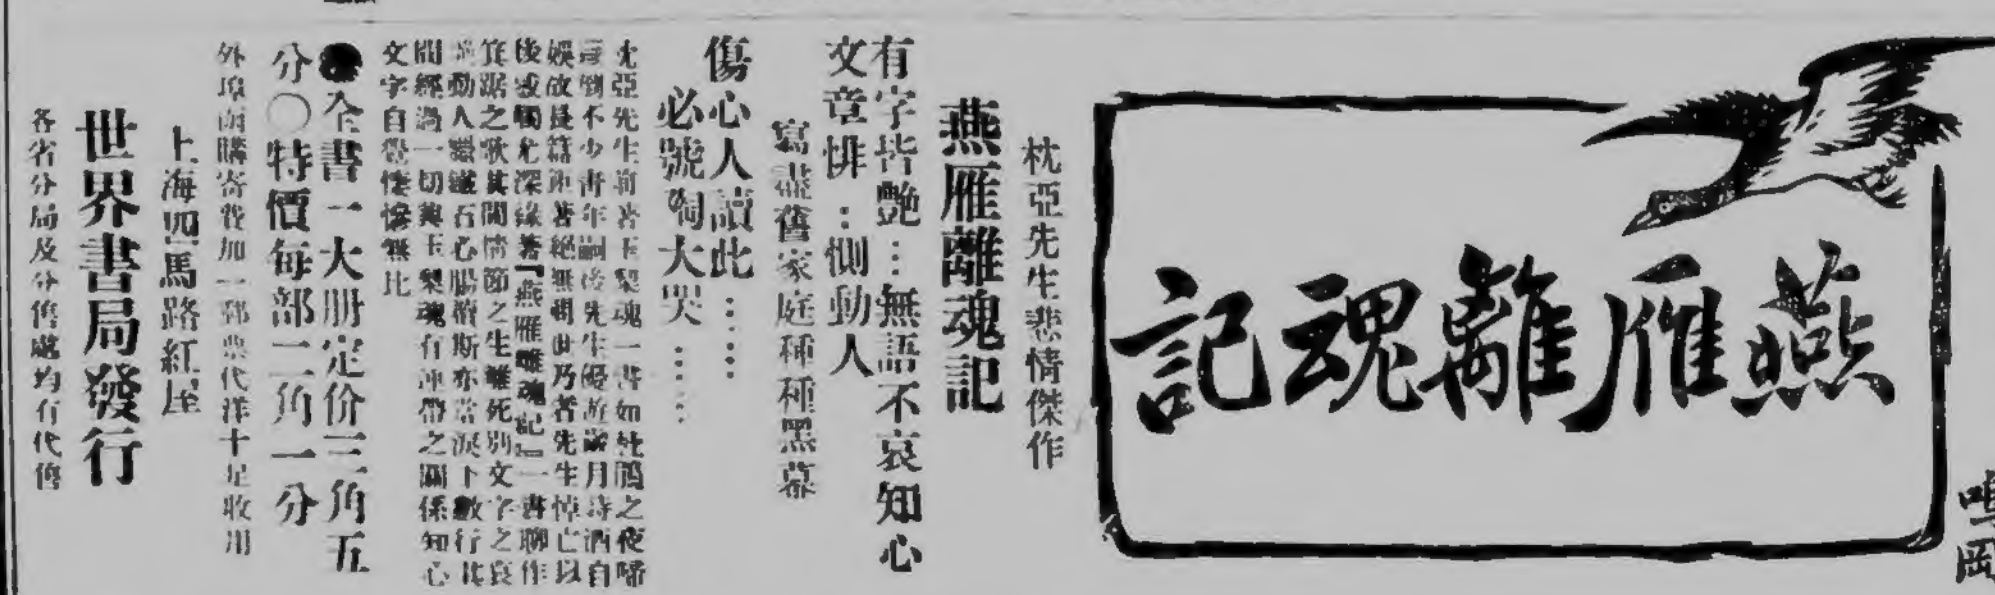 燕雁離魂記
鳴岡
枕亞先生悲情傑作
燕雁離魂記
有字皆艷…無語不哀知心
文章悱…惻動人
寫盡舊家庭種種黑幕
傷心人讀此……
必號啕大哭……
枕亞先生前著玉梨魂一書如杜鵑之夜啼
不少青年嗣後先生優遊歲月詩酒自
娛故長篇鉅著絕無問世乃者先生悼亡以
後感觸尤深緣著『燕雁離魂記』一書聊作
箕踞之歌其間情節之生離死別文字之哀
動人雖鐵石心腸讀斯亦當淚下數行其
間經過一切與玉梨魂有連帶之關係知心
文字自覺悽慘無比
●全書一大册定价三角五
分〇特價每部二角一分
外埠函購寄費加一郵票代洋十足收用
上海四馬路紅屋
世界書局發行
各省分局及分售處均有代售